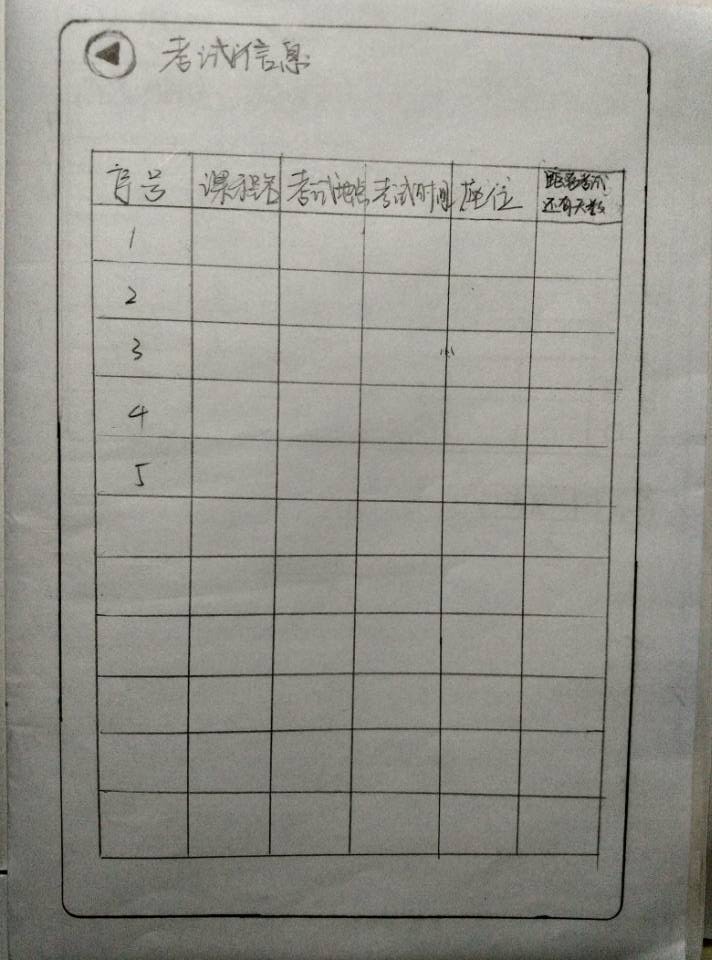 考试信息
序号 课程名 考试地点 考试时间 座位 距离考试还有天数
1
2
3
4
5